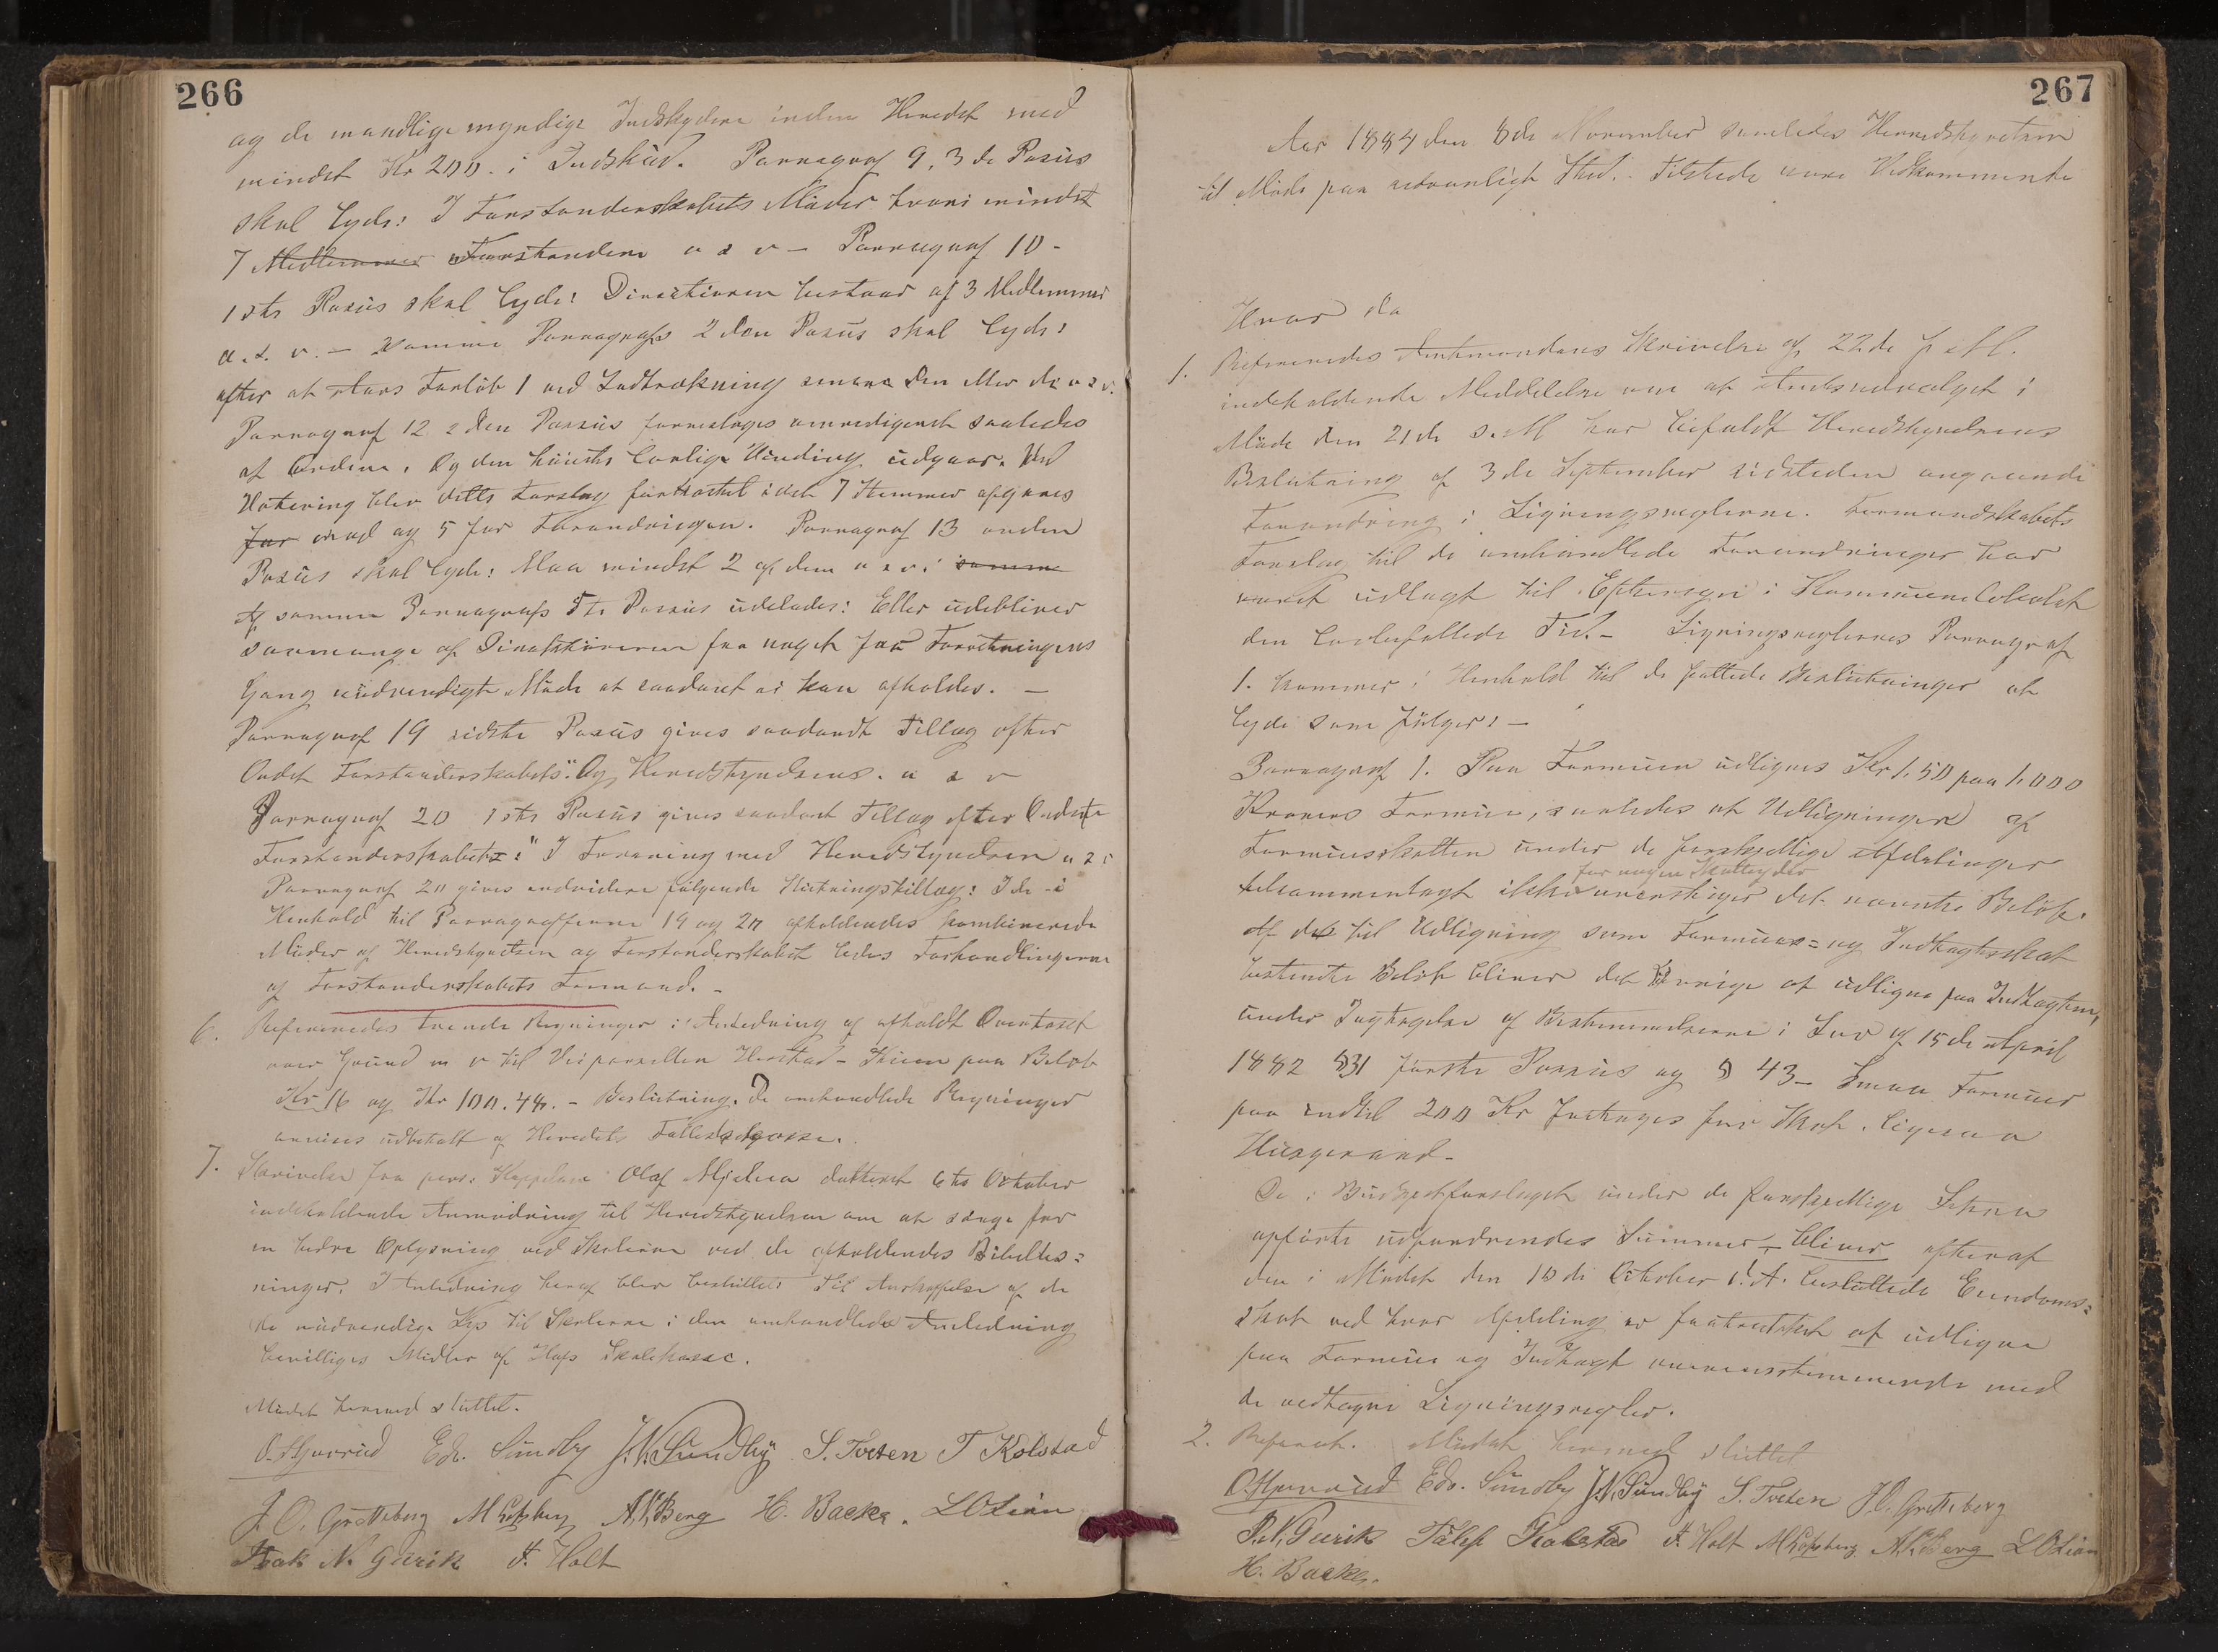 266
og de mandlige myndige Indskydere inden Heredet med
mindst Kr 200. i Indskud. Parragraf 9, 3de Passus
skal lyde: I Forstanderskabets Møder hvori mindst
7 Medlemmer Forstandere u s v – Parragraf 10 –
1ste Passus skal lyde: Direktionen bestaar af 3 Medlemmer
u. s. v. – Samme Parragrafs 2den Passus skal lyde:
efter et Aars Forløb 1 ved Lodtrækning senere den eller de u s v.
Parragraf 12 2den Passus foreslages saaledes
at lyde. Og den lovlige udgaar. Ved
Votering blev dette Forslag forkastet idet 7 Stemmer afgaves
for imod og 5 for Forandringen. Parragraf 13 anden
Passus skal lyde: Maa mindst 2 af dem u s v. samme
Af samme Parragrafs 5te Passus udelades: Eller udebliver
saamange af Direktørerne fra noget for Forretningens
Gang nødvendigt Møde at saadant ei kan afholdes. –
Parragraf 19 sidste Passus gives saadandt Tillæg efter
Ordet Forstanderskabets: "Og Heredstyrelsens. u s v
Parragraf 20 1ste Passus gives saadant Tillæg efter Ordet
Forstanderskabets: "I Forening med Heredstyrelsen u s v
Parragraf 20 gives endvidere følgende Slutningstillæg: I de i
Henhold til Parragrafferne 19 og 20 afholdendes kombinerede
Møder af Heredstyrelsen og Forstanderskabet ledes Forhandlingerne
af Forstanderskabets Formand. –
6. Refereredes tvende Regninger i Anledning af afholdt Overtaxt
over Grund m v til Veiparcellen – paa Beløb
Kr 16 og Kr 100.44. – Beslutning. De omhandlede Regninger
anvises udbetalt af Heredets Fælleskasse.
7. Skrivelse fra pers. Kappelan Olaf dateret 6te Oktober
indeholdende Anmodning til Heredstyrelsen om at sørge for
en bedre Oplysning ved Skolerne ved de afholdendes Bibellæs=
ninger. I Anledning heraf blev besluttet: Til Anskaffelse af de
de nødvendige Lys til Skolerne i den omhandlede Anledning
bevilliges Midler af Hofs Skolekasse.
Mødet hermed sluttet.
Ed. Sundby J. N. Sundby S. Tveten T Kolstad
J. O. Grøtteberg A. N. Berg H. Backe. L O Lien
Isak N. Gurik F. Holt
267
Aar 1884 den 8de November samledes Herredstyrelsen
til Møde paa sedvanligt Sted. Tilstede vare Vedkommende
Hvor da
1. Refereredes Amtmandens Skrivelse af 22de f. M.
indeholdende Meddelelse om at Amtsudvalget i
Møde den 21de s. M har bifaldt Heredstyrelsens
Beslutning af 3de September sidstleden angaaende
Forandring i Ligningsreglerne. Formandskabets
Forslag til de omhandlede Forandringer har
været udlagt til Eftersyn i Kommunelokalet
den lovbefalede Tid. – Ligningsreglernes Parragraf
1. kommer i Henhold til de fattede Beslutninger at
lyde som følger: –
Parragraf 1. Paa Formuen udlignes Kr 1,50 paa 1,000
Kroners Formue, saaledes at Udligningen af
Formuesskatten under de forskjellige Afdelinger
for nogen Skatteyder
telsammenlagt ikke overstiger det nævnte Beløb.
Af det til Udligning som Formues= og Indtægtsskat
bestemte Beløb bliver det Øvrige at udligne paa Indtægten,
under Iagttagelse af Bestemmelserne i Lov af 15de April
1882 § 31 første Passus og § 43 – Smaa Formuer
paa indtil 200 Kr fritages for Skat. ligesaa
Husgeraad –
De i Budgetforslaget under de forskjellige Skoler
opførte udfordrendes Summer – bliver efterat
den i Mødet den 10de Oktober d. A. besluttede Eiendoms=
skat ved hver Afdeling er fratrukket at udligne
paa Formue og Indtægt overensstemmende med
de vedtagne Ligningsregler.
2. Referat. Mødet hermed sluttet
Edv. Sundby J. N. Sundby S. Tveten J. O. Grøtteberg
I. N. Gurik F. Holt A. N. Berg L O Lien
H. Backe.